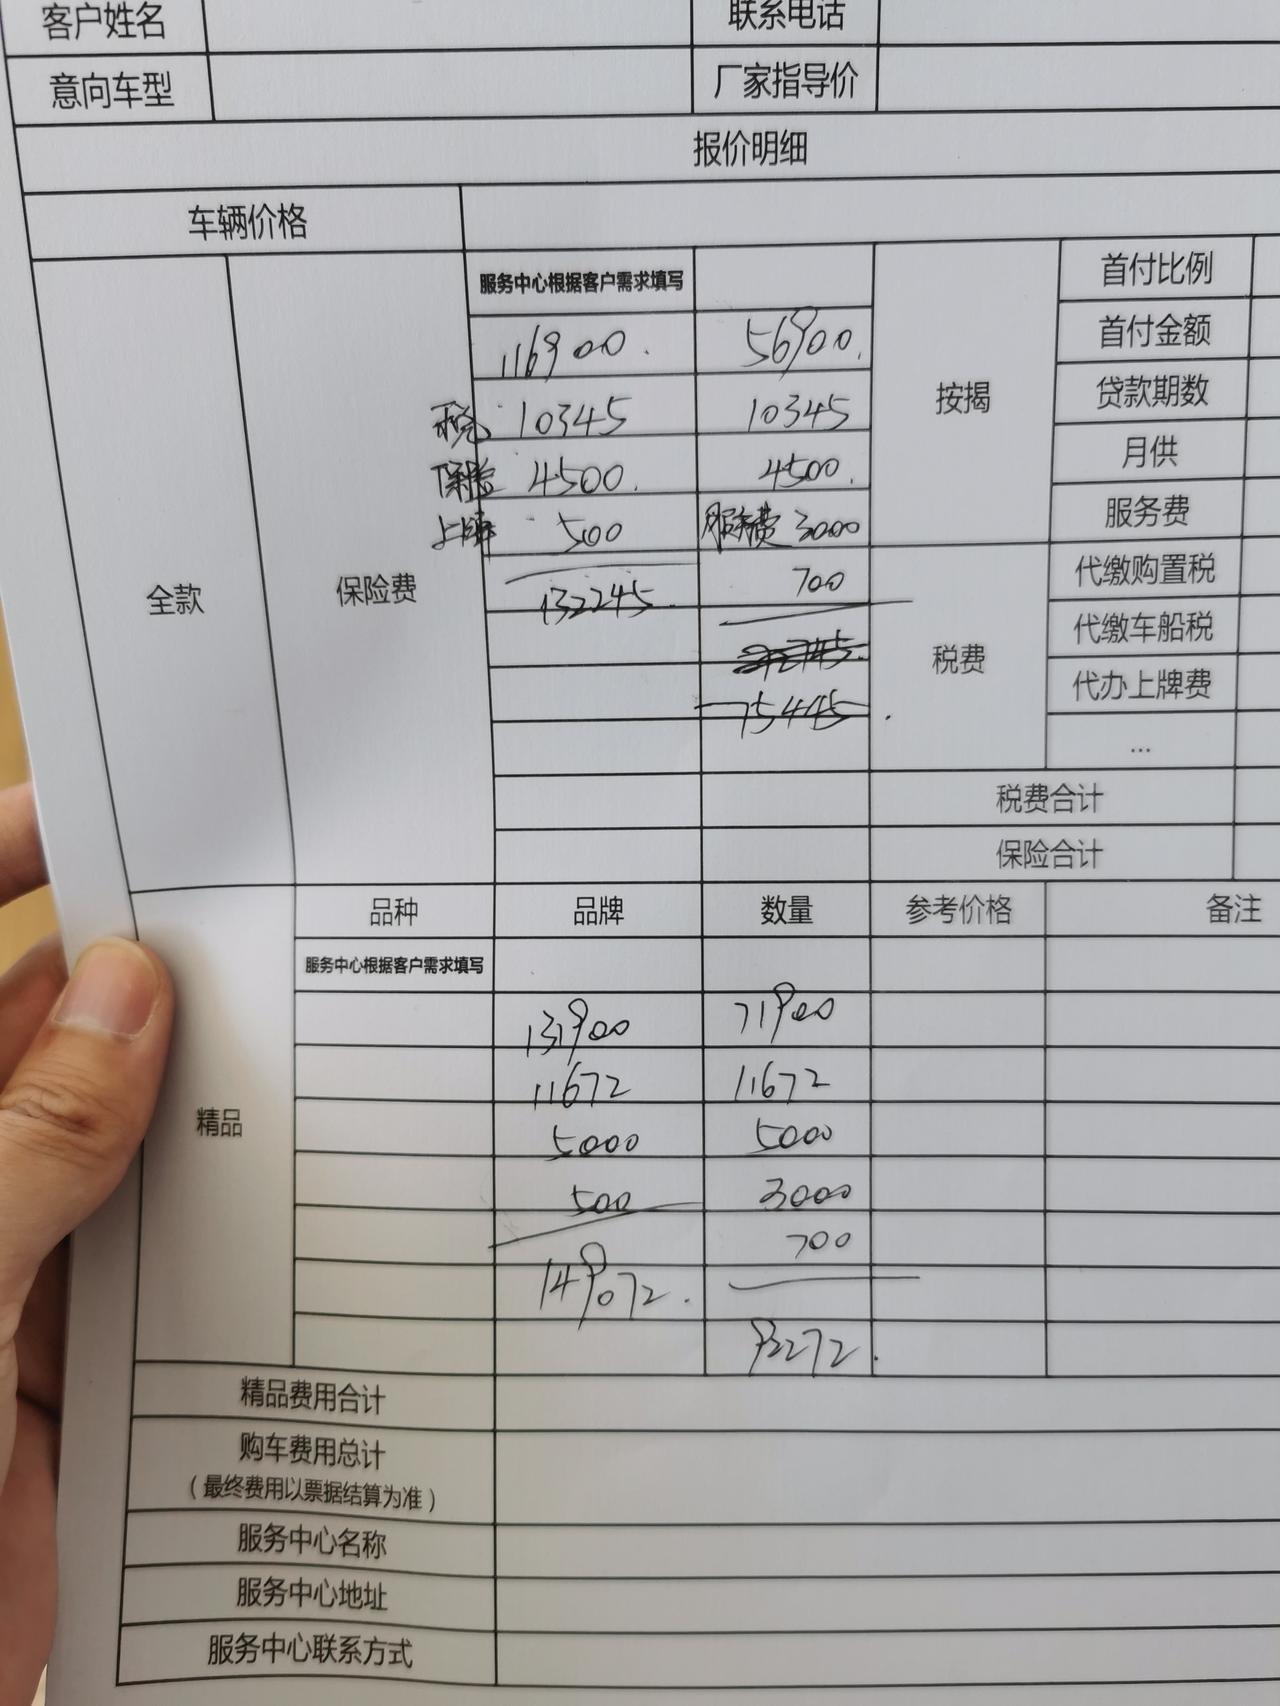 客户姓名 联系电话
意向车型 厂家指导价
报价明细
车辆价格
服务中心根据客户需求填写 首付比例
116900. 56900. 首付金额
税 10345 10345 按揭 贷款期数
保险 4500. 4500. 月供
上牌 500 服务费 3000 服务费
全款 保险费 132245. 700 代缴购置税
税费 代缴车船税
75445. 代办上牌费
...
税费合计
保险合计
品种 品牌 数量 参考价格 备注
服务中心根据客户需求填写
131900 71900
11672 11672
精品 5000 5000
500 3000
700
149072.
92272.
精品费用合计
购车费用总计
(最终费用以票据结算为准)
服务中心名称
服务中心地址
服务中心联系方式